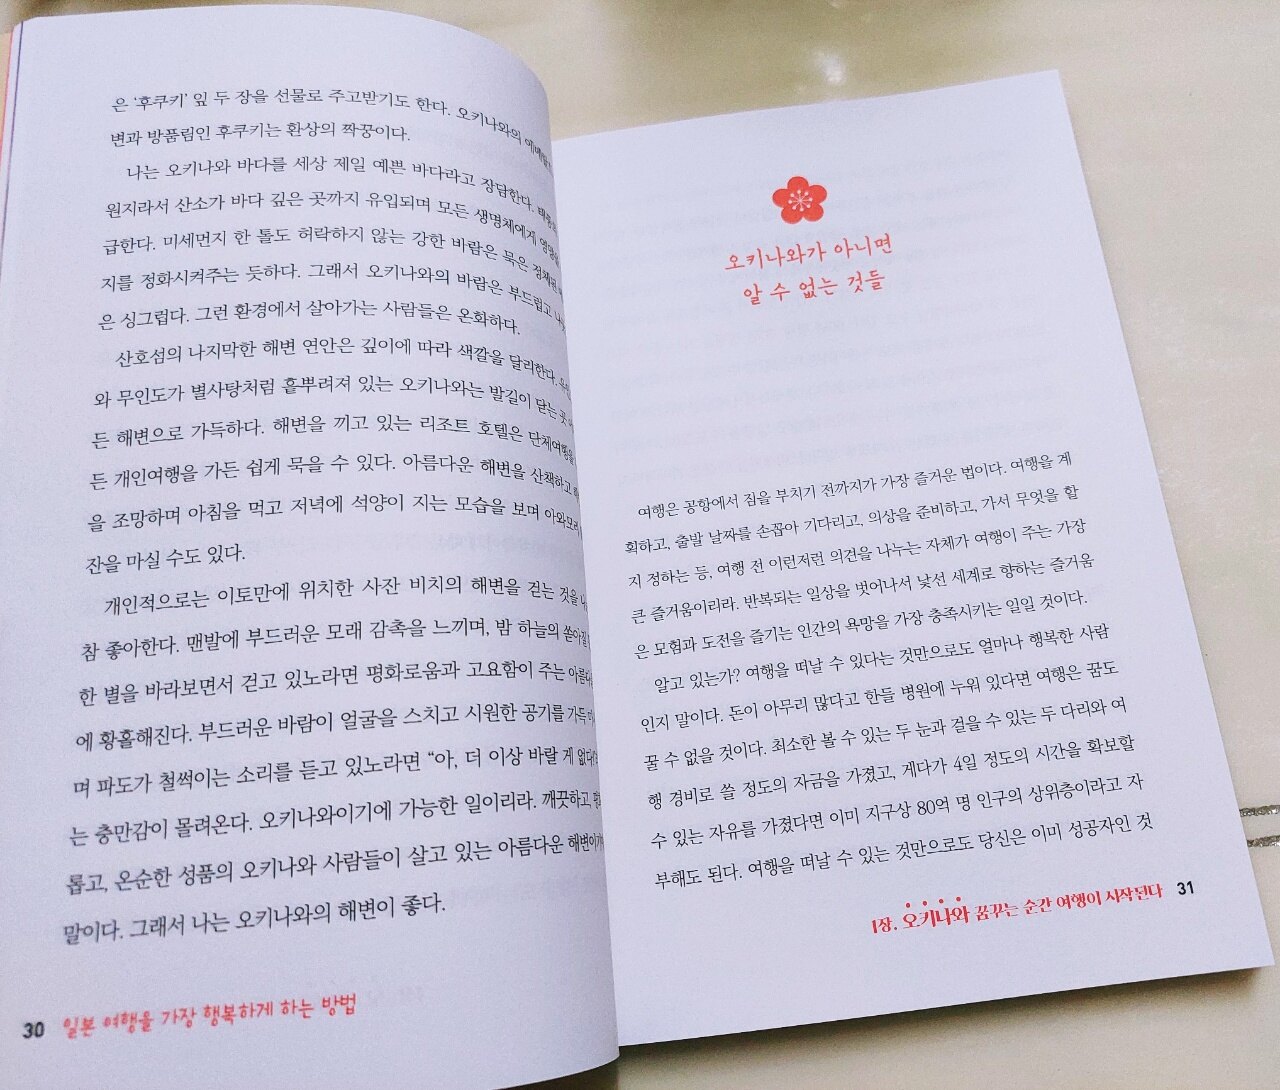 은 ‘후쿠키’ 잎 두 장을 선물로 주고받기도 한다. 오키나와의
변과 방품림인 후쿠키는 환상의 짝꿍이다.
나는 오키나와 바다를 세상 제일 예쁜 바다라고 장담한다.
원지라서 산소가 바다 깊은 곳까지 유입되며 모든 생명체에게
급한다. 미세먼지 한 톨도 허락하지 않는 강한 바람은 묵은
지를 정화시켜주는 듯하다. 그래서 오키나와의 바람은 부드럽고
은 싱그럽다. 그런 환경에서 살아가는 사람들은 온화하다.
산호섬의 나지막한 해변 연안은 깊이에 따라 색깔을 달리한다.
와 무인도가 별사탕처럼 흩뿌려져 있는 오키나와는 발길이 닫는 곳
든 해변으로 가득하다. 해변을 끼고 있는 리조트 호텔은 단체여행을
든 개인여행을 가든 쉽게 묵을 수 있다. 아름다운 해변을 산책하고
을 조망하며 아침을 먹고 저녁에 석양이 지는 모습을 보며
잔을 마실 수도 있다.
개인적으로는 이토만에 위치한 사잔 비치의 해변을 걷는 것을
참 좋아한다. 맨발에 부드러운 모래 감촉을 느끼며, 밤 하늘의
한 별을 바라보면서 걷고 있노라면 평화로움과 고요함이 주는
에 황홀해진다. 부드러운 바람이 얼굴을 스치고 시원한 공기를
며 파도가 철썩이는 소리를 듣고 있노라면 “아, 더 이상 바랄 게
는 충만감이 몰려온다. 오키나와이기에 가능한 일이리라. 깨끗하고,
롭고, 온순한 성품의 오키나와 사람들이 살고 있는 아름다운
말이다. 그래서 나는 오키나와의 해변이 좋다.
30 일본 여행을 가장 행복하게 하는 방법
오키나와가 아니면
알 수 없는 것들
여행은 공항에서 짐을 부치기 전까지가 가장 즐거운 법이다. 여행을 계
획하고, 출발 날짜를 손꼽아 기다리고, 의상을 준비하고, 가서 무엇을 할
지 정하는 등, 여행 전 이런저런 의견을 나누는 자체가 여행이 주는 가장
큰 즐거움이리라. 반복되는 일상을 벗어나서 낯선 세계로 향하는 즐거움
은 모험과 도전을 즐기는 인간의 욕망을 가장 충족시키는 일일 것이다.
알고 있는가? 여행을 떠날 수 있다는 것만으로도 얼마나 행복한 사람
인지 말이다. 돈이 아무리 많다고 한들 병원에 누워 있다면 여행은 꿈도
꿀 수 없을 것이다. 최소한 볼 수 있는 두 눈과 걸을 수 있는 두 다리와 여
행 경비로 쓸 정도의 자금을 가졌고, 게다가 4일 정도의 시간을 확보할
수 있는 자유를 가졌다면 이미 지구상 80억 명 인구의 상위층이라고 자
부해도 된다. 여행을 떠날 수 있는 것만으로도 당신은 이미 성공자인 것
1장. 오키나와 꿈꾸는 순간 여행이 시작된다 31